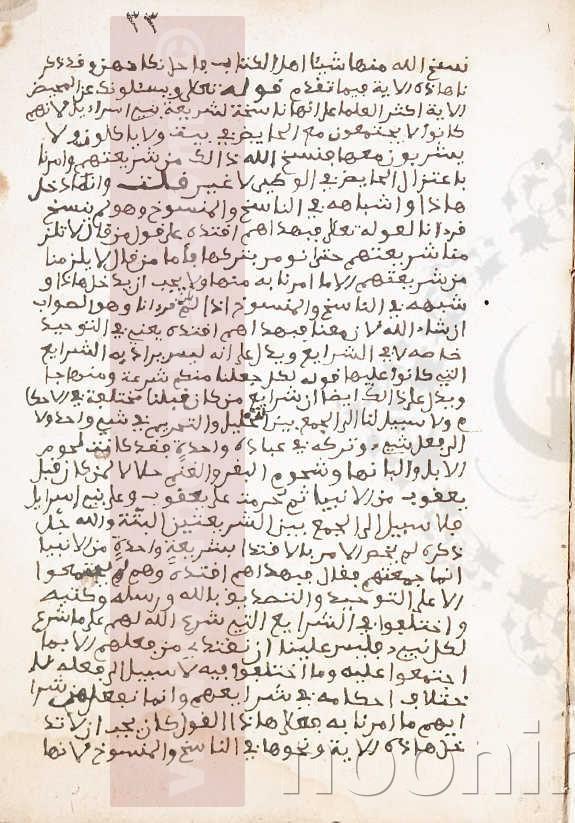 ٣٣
نسخ الله منها شيئا اهل الكتاب
ناهاذه الاية فيما تقدم قوله تعلى ويسئلونك عن المحيض
الاية اكثر العلما على انها ناسخة لشريعة بني اسراءيل لانهم
كانوا لا يجتمعون مع الحايض في بيت ولا ياكلون ولا
يشربون معها فنسخ الله ذالك من شريعتهم وامرنا
باعتزال الحايض في الوطئ لا غير قلت وانما دخل
هاذا واشباهه في الناسخ والمنسوخ وهو لم ينسخ
قرءانا لقوله تعلى فبهداهم اقتده على قول من قال لا تلز
منا شريعتهم حتى نومر بتركها فاما من قال لا يلزمنا
من شريعتهم الا ما امرنا به منها ولا يجب ان يدخل هاذا و
شبهه في الناسخ والمنسوخ اذا لم ينسخ قرءانا وهو الصواب
ان شاء الله لان معنى فبهداهم اقتده يعني في التوحيد
خاصة لا في الشرايع ويدل على انه ليس يراد به الشرايع
التي كانوا عليها قوله لكل جعلنا منكم شرعة ومنهاجا
ويدل على ذالك ايضا ان شرايع من كان قبلنا مختلفة في الاحكا
م ولا سبيل لنا الى الجمع بين التحليل والتحريم في شيء واحد ولا
الى فعل شيء وتركه في عبادة واحدة فقد كانت لحوم
الابل والبانها وشحوم البقر والغنم حلالا لمن كان قبل
يعقوب من الانبيا ثم حرمت على يعقوب وعلى بني إسرايل
فلا سبيل الى الجمع بين الشريعتين البتة والله جل
ذكره لم يخص الامر بالاقتدا بشريعة واحدة من الانبيا
انما جمعتهم فقال فبهداهم اقتده وهم لم يجتمعوا
الا على التوحيد والتصديق بالله ورسله وكتبه
واختلفوا في الشرايع التي شرع الله لهم على ما شرع
لكل نبيء فليس علينا ان نقتدي من فعلهم الا بما
اجتمعوا عليه وما اختلفوا فيه لا سبيل الى فعله
ختلاف احكامه في شرايعهم وانما نفعل من شرا
ايعهم ما امرنا به فعلى هاذا القول كان يجب ان لا تد
خل هاذه الاية ونحوها في الناسخ والمنسوخ لانها
noonin
www.